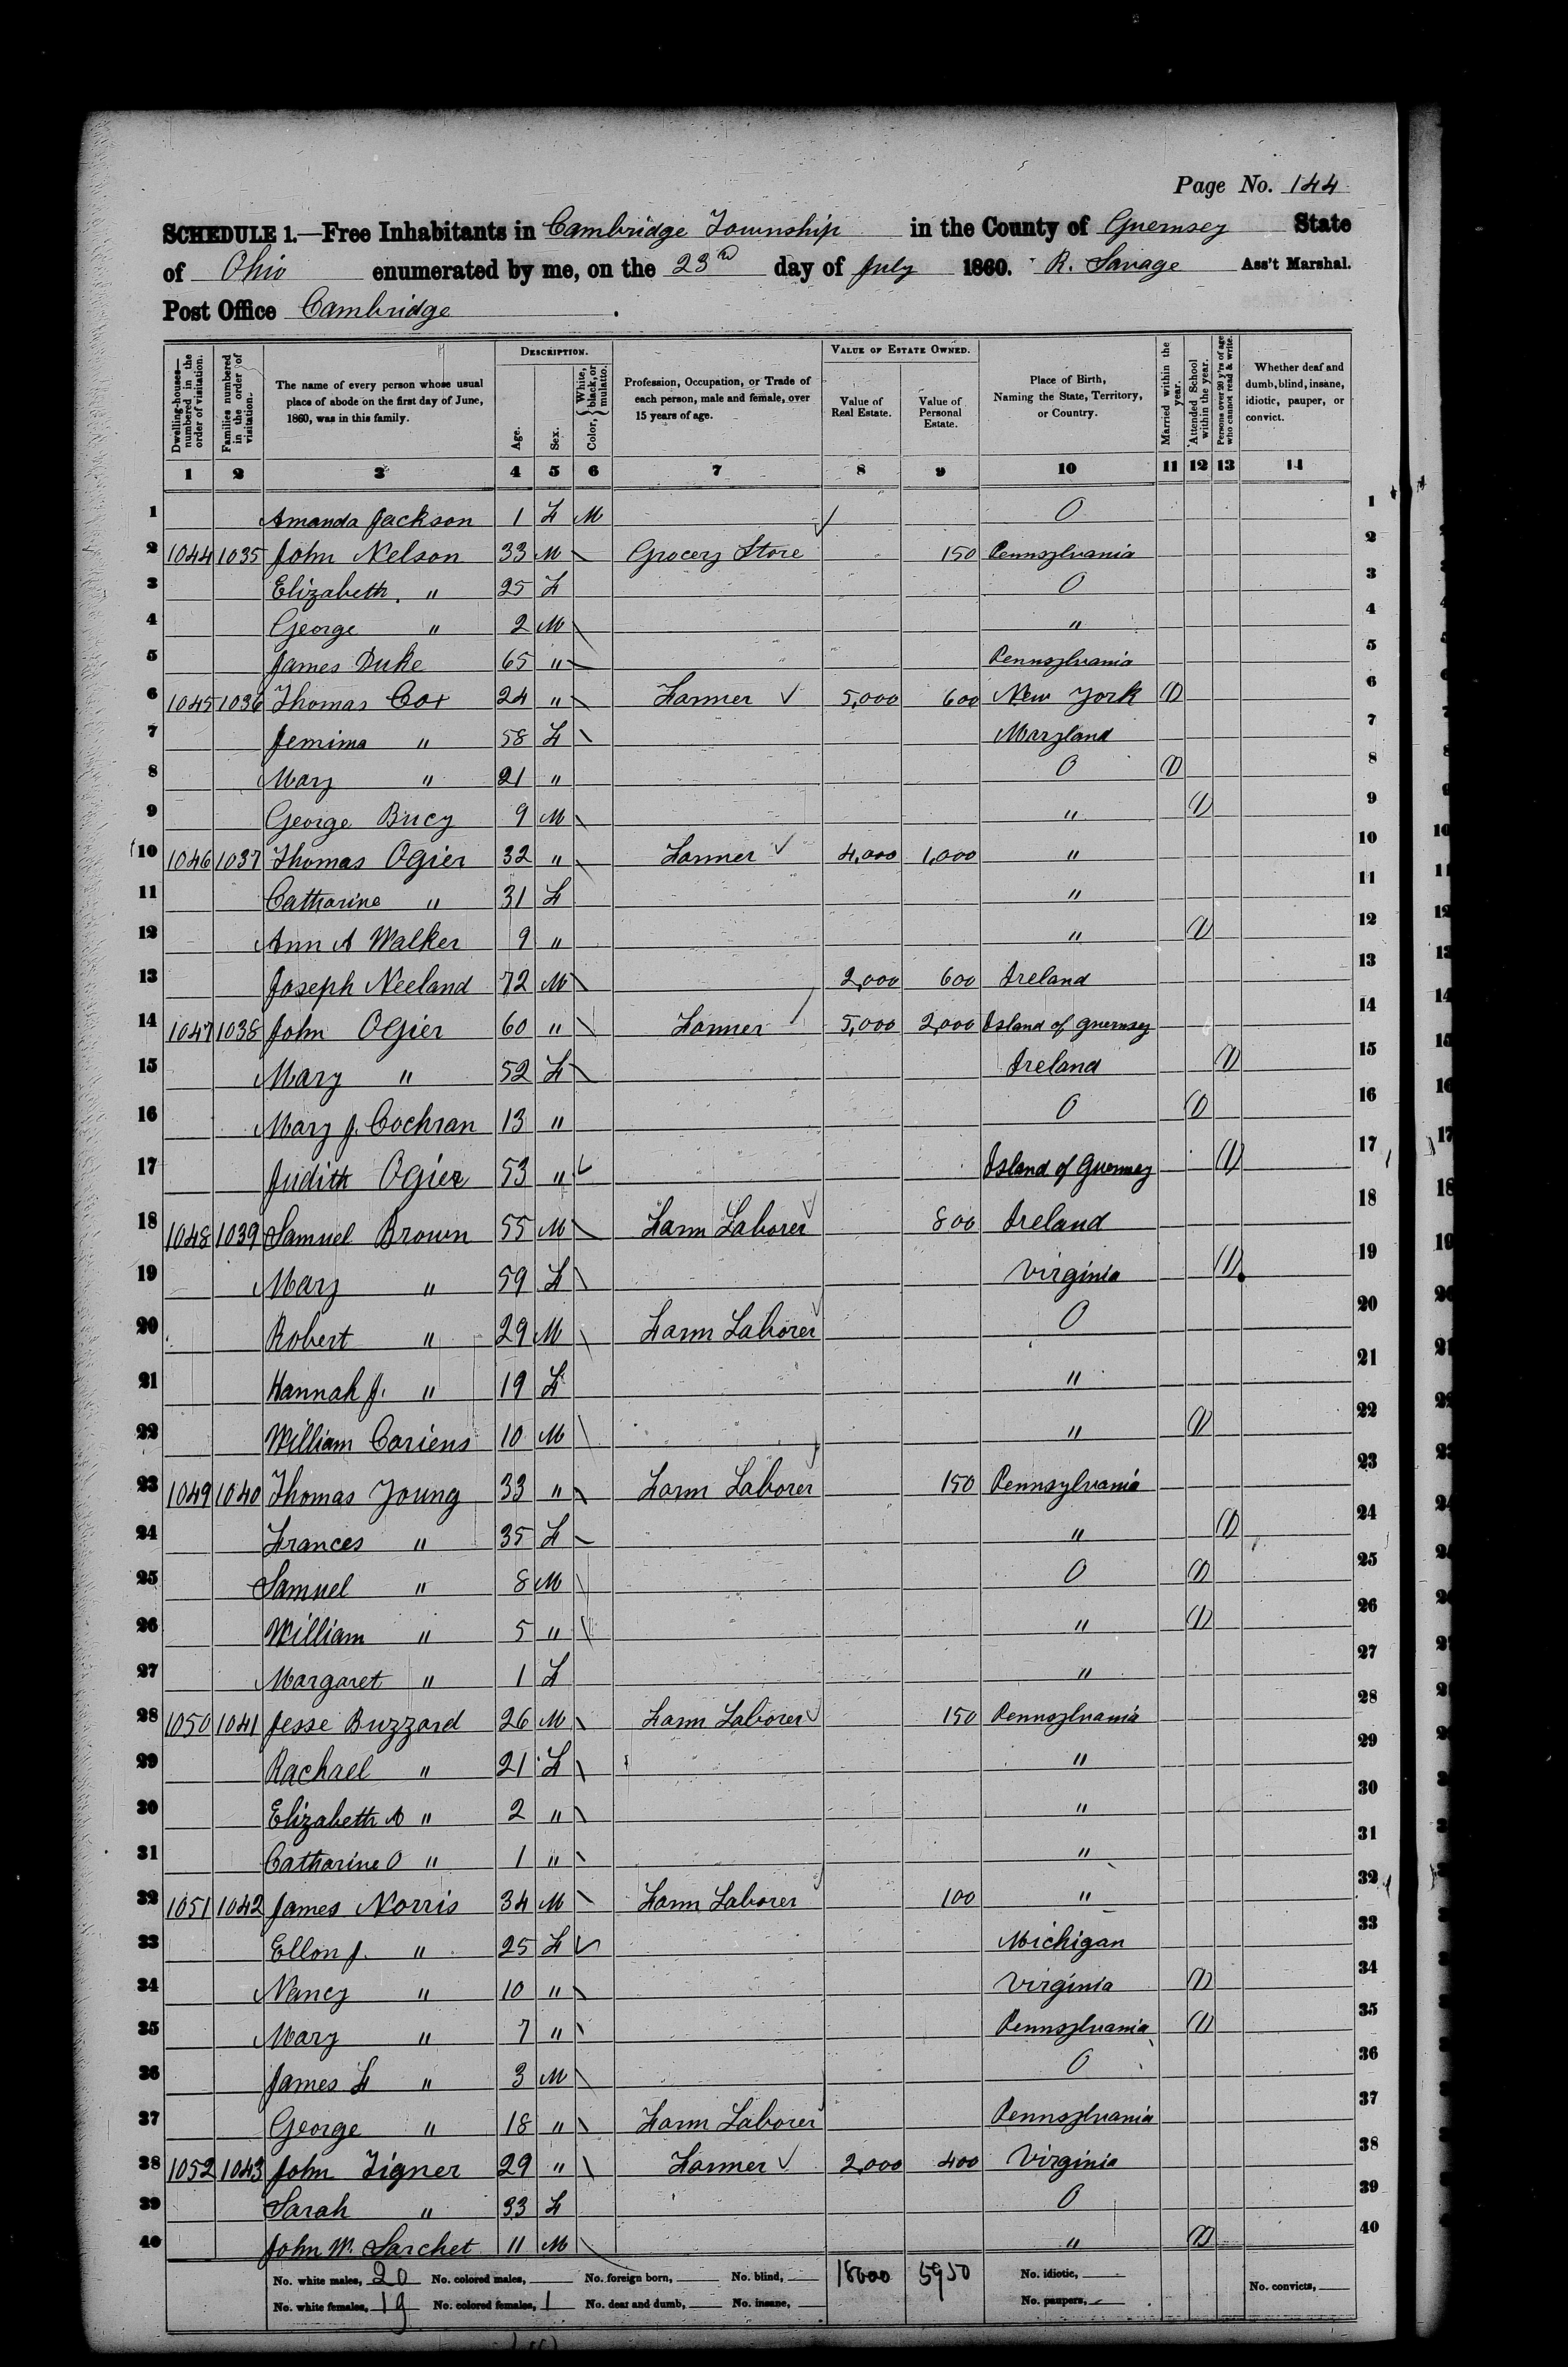 Page No. 144
SCHEDULE 1.—Free Inhabitants in Cambridge Township in the County of Guernsey State
of Ohio enumerated by me, on the 23d day of July 1860. R. Savage Ass't Marshal.
Post Office Cambridge
Dwelling-houses—numbered in the order of visitation.
Families numbered in the order of visitation.
The name of every person whose usual place of abode on the first day of June, 1860, was in this family.
DESCRIPTION.
Age.
Sex.
Color, White, black, or mulatto.
Profession, Occupation, or Trade of each person, male and female, over 15 years of age.
VALUE OF ESTATE OWNED.
Value of Real Estate.
Value of Personal Estate.
Place of Birth, Naming the State, Territory, or Country.
Married within the year.
Attended School within the year.
Persons over 20 y'rs of age who cannot read & write.
Whether deaf and dumb, blind, insane, idiotic, pauper, or convict.
1 2 3 4 5 6 7 8 9 10 11 12 13 14
1 Amanda Jackson 1 F M O 1
2 1044 1035 John Nelson 33 M Grocery Store 150 Pennsylvania 2
3 Elizabeth " 25 F O 3
4 George " 2 M " 4
5 James Duke 65 " Pennsylvania 5
6 1045 1036 Thomas Cox 24 " Farmer 5,000 600 New York 1 6
7 Jemima " 58 F Maryland 7
8 Mary " 21 " O 1 8
9 George Bucy 9 M " 1 9
10 1046 1037 Thomas Ogier 32 " Farmer 4,000 1,000 " 10
11 Catharine " 31 F " 11
12 Ann A Walker 9 " " 1 12
13 Joseph Neeland 72 M 2,000 600 Ireland 13
14 1047 1038 John Ogier 60 " Farmer 5,000 2,000 Island of Guernsey 14
15 Mary " 52 F Ireland 1 15
16 Mary J. Cochran 13 " O 1 16
17 Judith Ogier 53 " Island of Guernsey 1 17
18 1048 1039 Samuel Brown 55 M Farm Laborer 800 Ireland 18
19 Mary " 59 F Virginia 1 19
20 Robert " 29 M Farm Laborer O 20
21 Hannah J. " 19 F " 21
22 William Coriens 10 M " 1 22
23 1049 1040 Thomas Young 33 " Farm Laborer 150 Pennsylvania 23
24 Frances " 35 F " 1 24
25 Samuel " 8 M O 1 25
26 William " 5 " " 1 26
27 Margaret " 1 F " 27
28 1050 1041 Jesse Buzzard 26 M Farm Laborer 150 Pennsylvania 28
29 Rachael " 21 F " 29
30 Elizabeth A " 2 " " 30
31 Catharine O " 1 " " 31
32 1051 1042 James Norris 34 M Farm Laborer 100 " 32
33 Ellon J. " 25 F Michigan 33
34 Nancy " 10 " Virginia 1 34
35 Mary " 7 " Pennsylvania 1 35
36 James F " 3 M O 36
37 George " 18 " Farm Laborer Pennsylvania 37
38 1052 1043 John Tigner 29 " Farmer 2,000 400 Virginia 38
39 Sarah " 33 F O 39
40 John W. Sarchet 11 M " 1 40
No. white males, 20 No. colored males, No. foreign born, No. blind, 18000 5950 No. idiotic,
No. white females, 19 No. colored females, 1 No. deaf and dumb, No. insane, No. paupers, No. convicts,